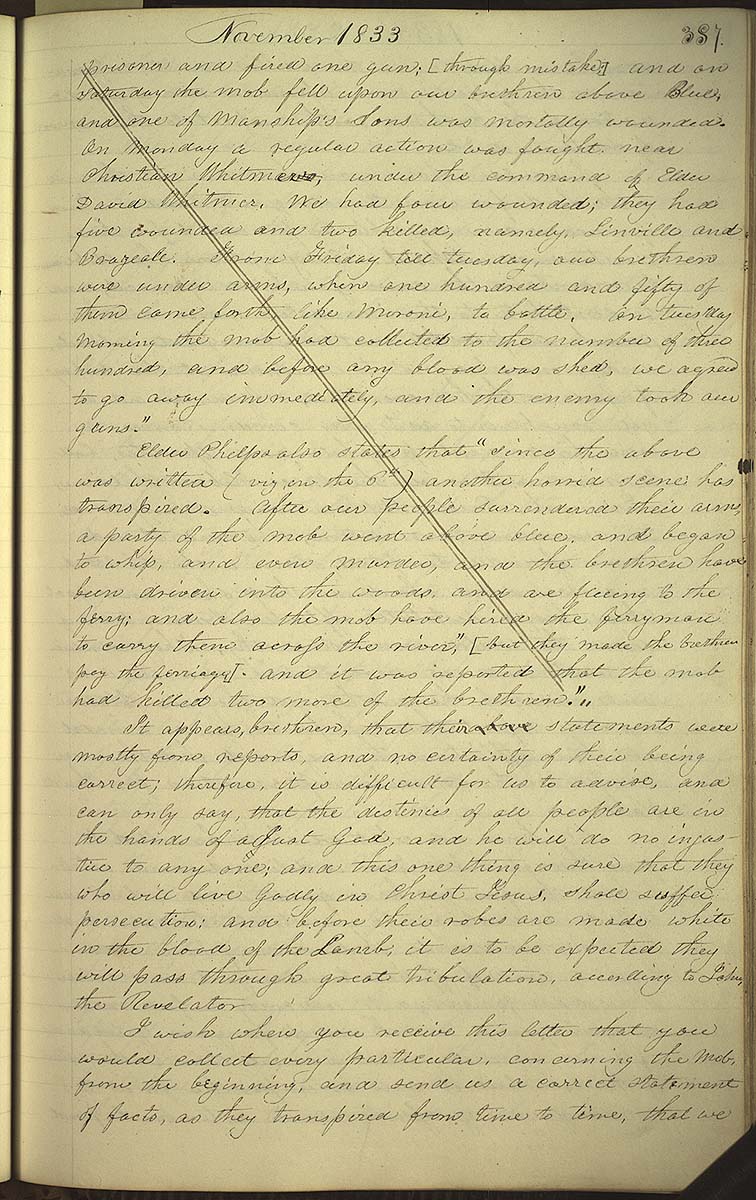 November 1833
387.
prisoner and fired one gun; [through mistake;] and on
Saturday the mob fell upon our brethren above Blue,
and one of Manship's Sons was mortally wounded.
On Monday a regular action was fought near
Christian Whitmers, under the command of Elder
David Whitmer. We had four wounded; they had
five wounded and two killed, namely, Linville and
Brazeale. From Friday till tuesday, our brethren
were under arms, when one hundred and fifty of
them came forth, like Moroni, to battle. On tuesday
morning the mob had collected to the number of three
hundred, and before any blood was shed, we agreed
to go away immediately, and the enemy took our
guns."
Elder Phelps also states that "since the above
was written (viz on the 6th) another horrid scene has
transpired. After our people surrendered their arms,
a party of the mob went above blue, and began
to whip, and even murder, and the brethren have
been driven into the woods, and are fleeing to the
ferry; and also the mob have hired the ferryman
to carry them across the river," [but they made the brethren
pay the ferriage]. and it was reported that the mob
had killed two more of the brethren."
It appears, brethren, that their above statements were
mostly from reports, and no certainty of their being
correct; therefore, it is difficult for us to advise, and
can only say, that the destinies of all people are in
the hands of a Just God, and he will do no injus-
tice to any one; and this one thing is sure that they
who will live Godly in Christ Jesus, shall suffer
persecution; and before their robes are made white
in the blood of the Lamb, it is to be expected they
will pass through great tribulation, according to John,
the Revelator
I wish when you receive this letter that you
would collect every particular, concerning the Mob,
from the beginning, and send us a correct statement
of facts, as they transpired from time to time, that we